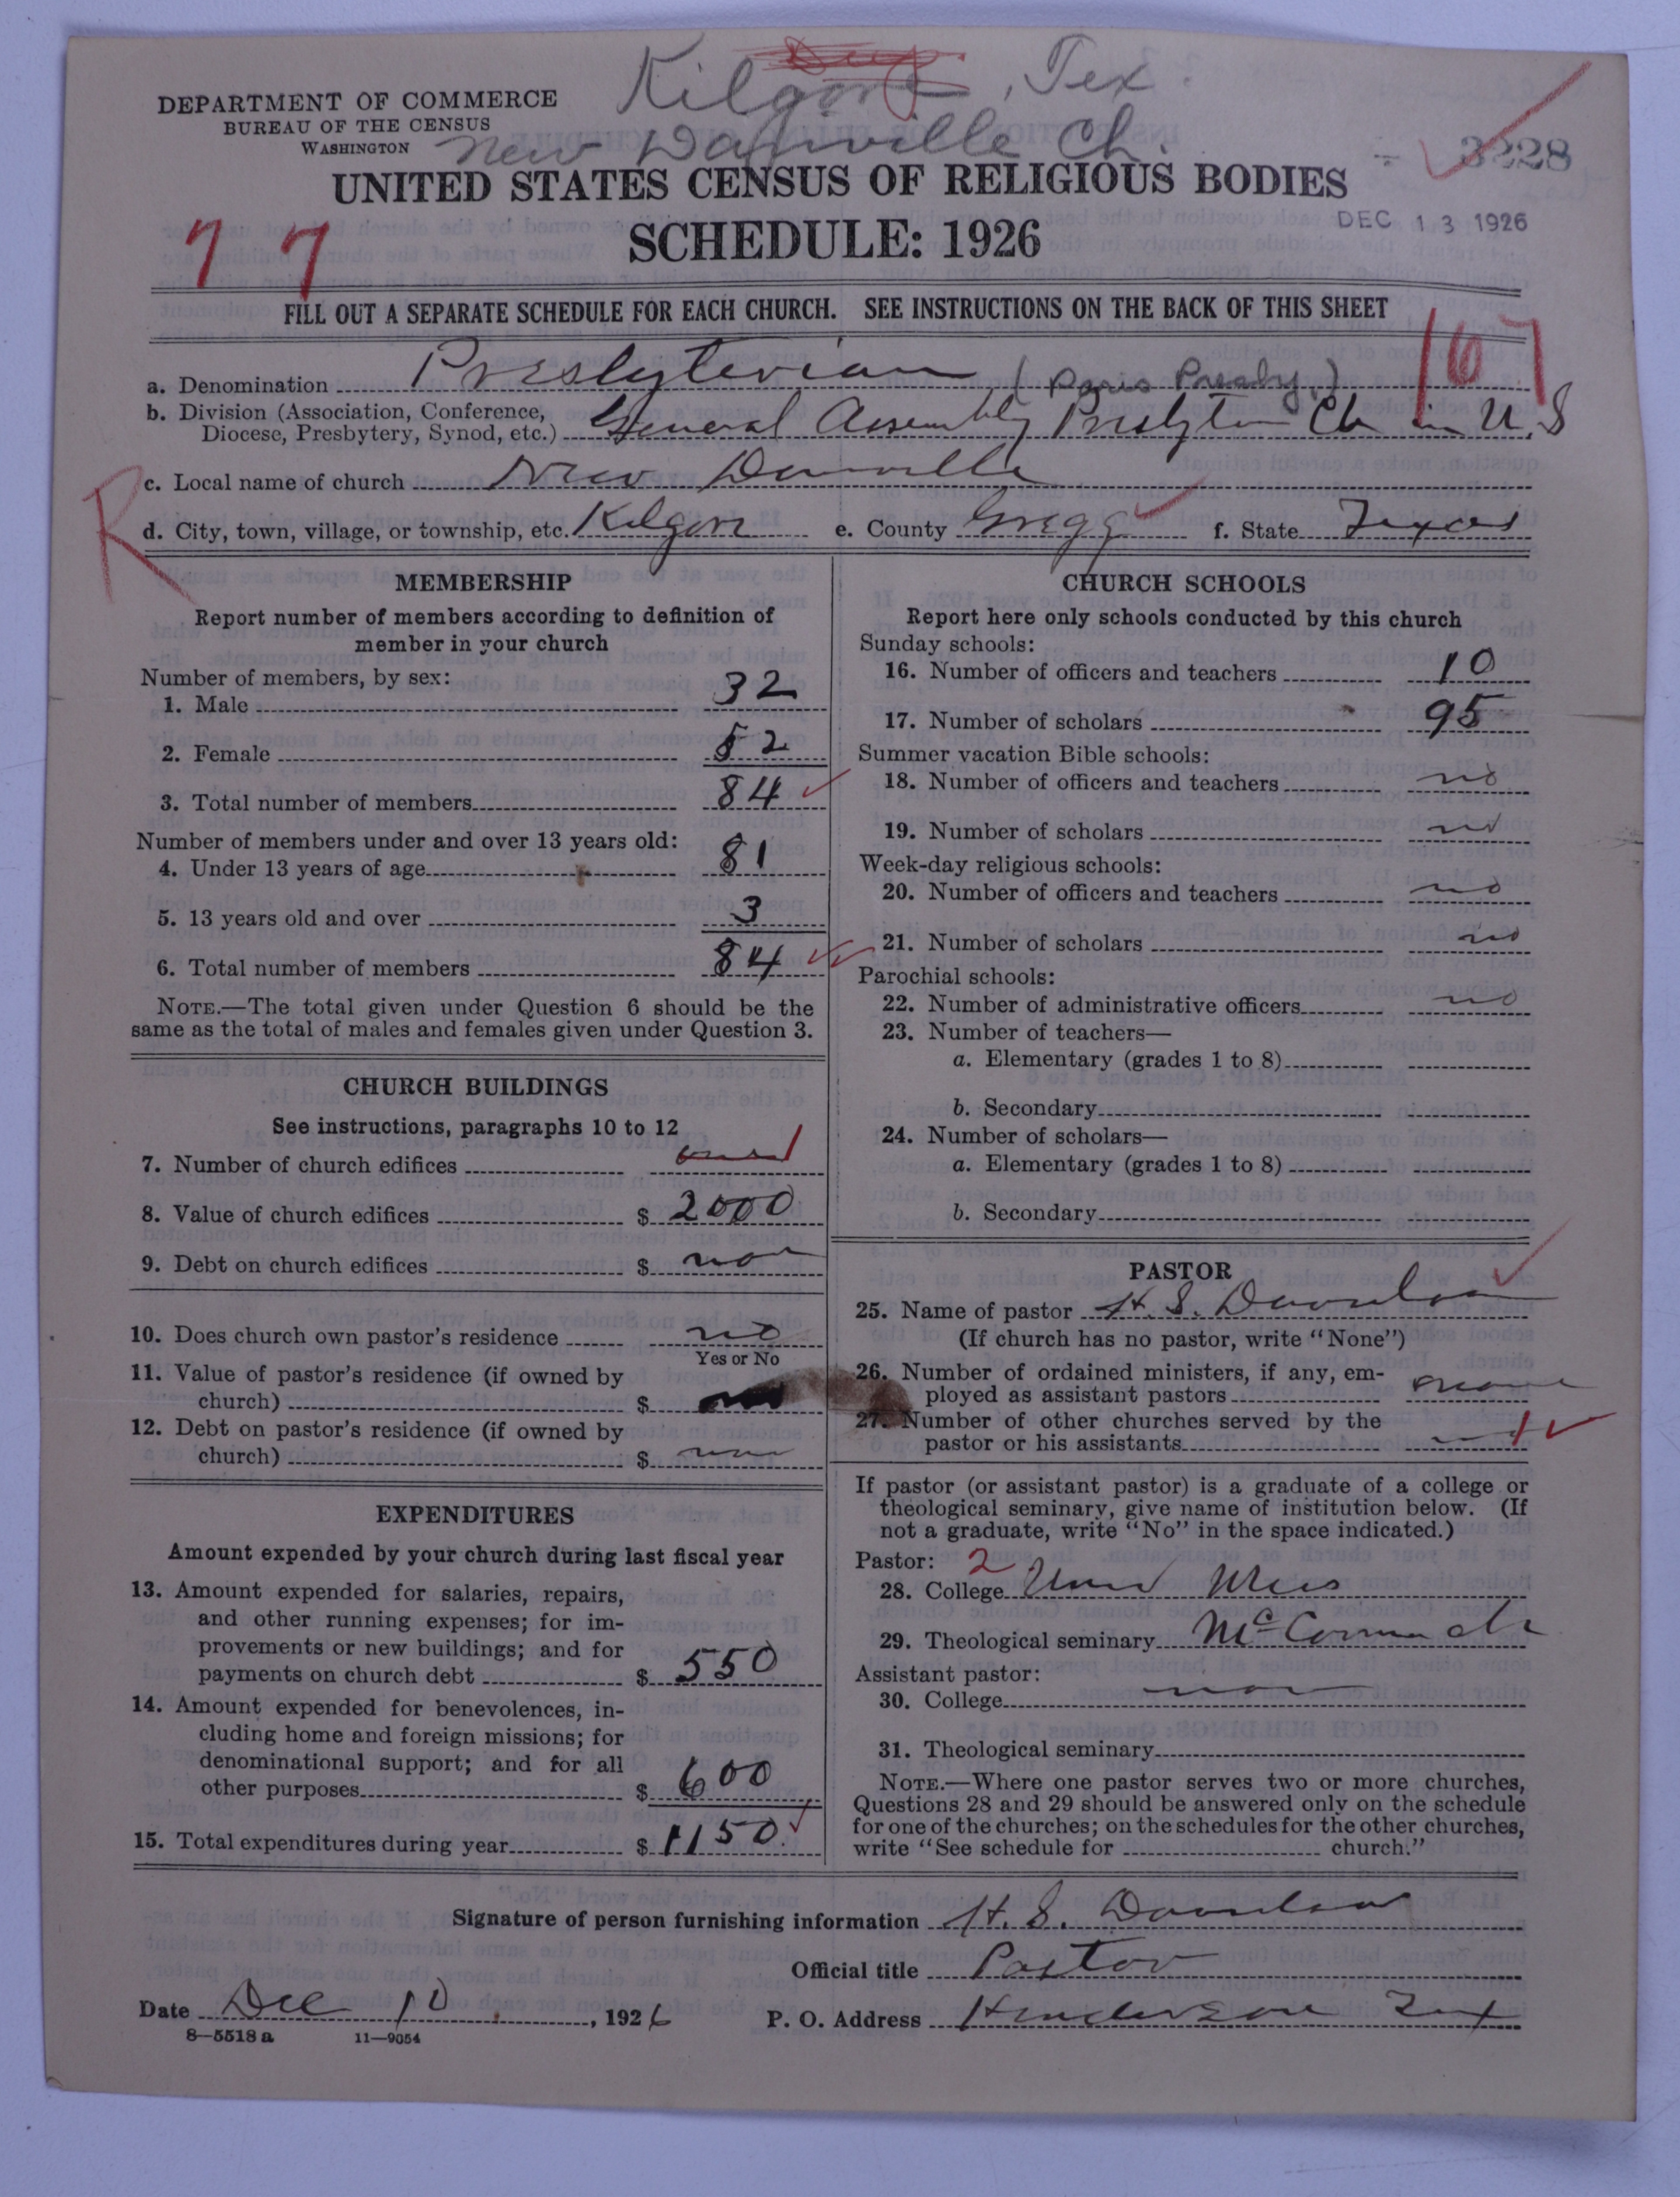 Kilgore, Tex
DEPARTMENT OF COMMERCE
BUREAU OF THE CENSUS
WASHINGTON
New Danville Ch.
3228
UNITED STATES CENSUS OF RELIGIOUS BODIES
SCHEDULE: 1926
DEC 13 1926
7 7
FILL OUT A SEPARATE SCHEDULE FOR EACH CHURCH. SEE INSTRUCTIONS ON THE BACK OF THIS SHEET
167
a. Denomination Presbyterian (Paris Presby.)
b. Division (Association, Conference,
Diocese, Presbytery, Synod, etc.) General Assembly Presbyten Ch in U.S
c. Local name of church New Danville
R
d. City, town, village, or township, etc. Kilgore e. County Gregg f. State Texas
MEMBERSHIP
Report number of members according to definition of
member in your church
Number of members, by sex:
1. Male 32
2. Female 52
3. Total number of members 84
Number of members under and over 13 years old:
4. Under 13 years of age 81
5. 13 years old and over 3
6. Total number of members 84
NOTE.—The total given under Question 6 should be the
same as the total of males and females given under Question 3.
CHURCH BUILDINGS
See instructions, paragraphs 10 to 12
7. Number of church edifices 1
8. Value of church edifices $ 2000
9. Debt on church edifices $ non
10. Does church own pastor's residence no
Yes or No
11. Value of pastor's residence (if owned by
church) $
12. Debt on pastor's residence (if owned by
church) $ non
EXPENDITURES
Amount expended by your church during last fiscal year
13. Amount expended for salaries, repairs,
and other running expenses; for im-
provements or new buildings; and for
payments on church debt $ 550
14. Amount expended for benevolences, in-
cluding home and foreign missions; for
denominational support; and for all
other purposes $ 600
15. Total expenditures during year $ 1150
CHURCH SCHOOLS
Report here only schools conducted by this church
Sunday schools:
16. Number of officers and teachers 10
17. Number of scholars 95
Summer vacation Bible schools:
18. Number of officers and teachers no
19. Number of scholars no
Week-day religious schools:
20. Number of officers and teachers no
21. Number of scholars no
Parochial schools:
22. Number of administrative officers no
23. Number of teachers—
a. Elementary (grades 1 to 8)
b. Secondary
24. Number of scholars—
a. Elementary (grades 1 to 8)
b. Secondary
PASTOR
25. Name of pastor H. S.
(If church has no pastor, write "None")
26. Number of ordained ministers, if any, em-
ployed as assistant pastors none
27. Number of other churches served by the
pastor or his assistants 1
If pastor (or assistant pastor) is a graduate of a college or
theological seminary, give name of institution below. (If
not a graduate, write "No" in the space indicated.)
Pastor: 2
28. College
29. Theological seminary McCormick
Assistant pastor:
30. College non
31. Theological seminary
NOTE.—Where one pastor serves two or more churches,
Questions 28 and 29 should be answered only on the schedule
for one of the churches; on the schedules for the other churches,
write "See schedule for church."
Signature of person furnishing information H. S.
Official title Pastor
Date Dec 10, 1926 P. O. Address Henderson Tex
8—5518a 11—9054